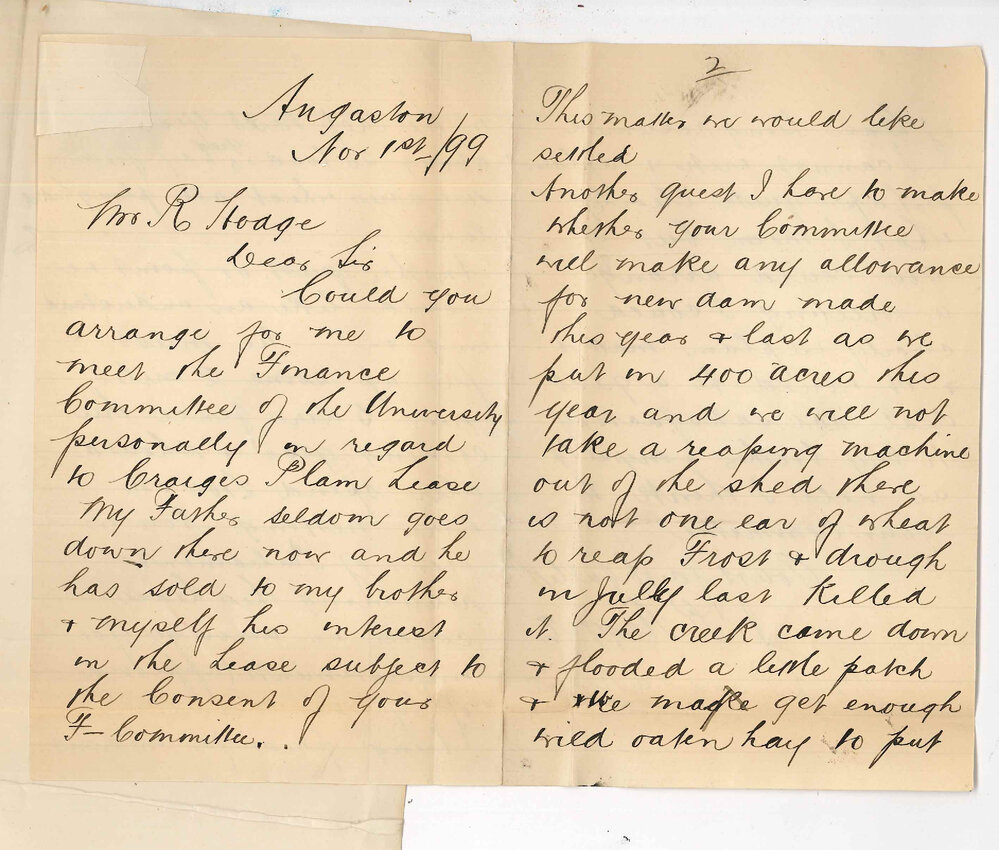 Angaston
Nov 1st /99
Mr R Hodge
Dear Sir
Could you
arrange for me to
meet the Finance
Committee of the University
personally in regard
to Craiges Plain Lease
My Father seldom goes
down there now and he
has sold to my brother
& myself his interest
in the Lease subject to
the Consent of your
F- Committee.
2
This matter we would like
settled
Another quest I have to make
whether your Committee
will make any allowance
for new dam made
this year & last as we
put in 400 acres this
year and we will not
take a reaping machine
out of the shed there
is not one ear of wheat
to reap Frost & drough
in July last Killed
it. The creek came down
& flooded a little patch
& we get enough
wild oaten hay to put